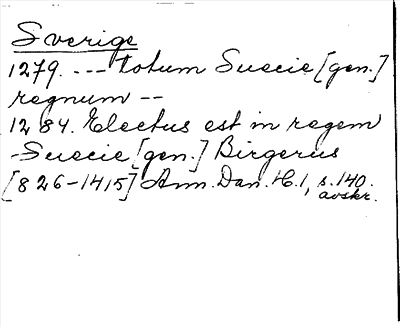 Sverige
1279. --- totum Suecie [gen.]
regnum --
1284. Electus est in regem
-Suecie [gen.] Birgerus
[826-1415] Ann. Dan. H.1, s.140.
avskr.